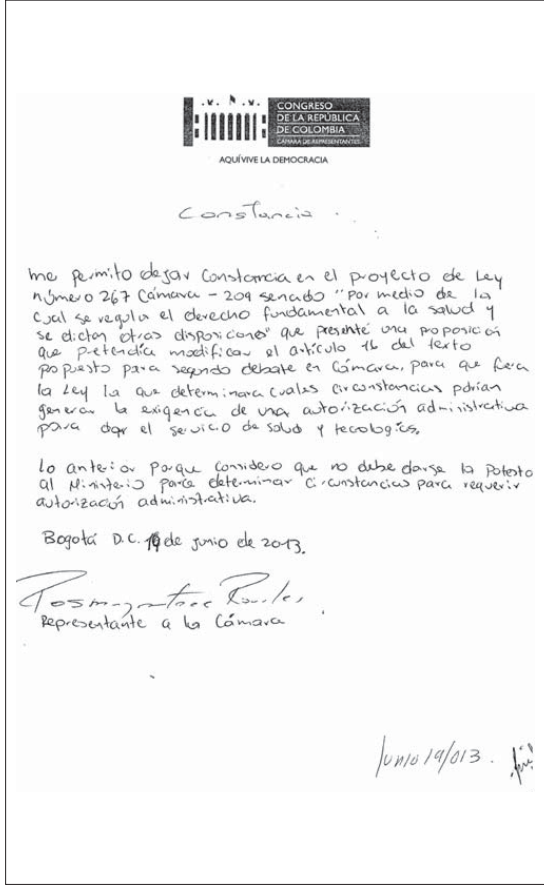 CONGRESO
DE LA REPÚBLICA
DE COLOMBIA
CÁMARA DE REPRESENTANTES
AQUÍVIVE LA DEMOCRACIA
Constancia.
me permito dejar Constancia en el proyecto de Ley
número 267 Cámara - 209 senado "Por medio de la
cual se regula el derecho fundamental a la salud y
se dictan otras disposiciones" que presenté una proposición
que pretendía modificar el artículo 16 del texto
propuesto para segundo debate en Cámara, para que fuera
la Ley la que determinara cuales circunstancias podrian
generar la exigencia de una autorización administrativa
para dar el servicio de salud y tecologías.
Lo anterior porque considero que no debe darse la potesta
al Ministerio para determinar circunstancias para requerir
autorización administrativa.
Bogotá D.C. 19 de junio de 2013.
Representante a la Cámara
Junio 19/013.